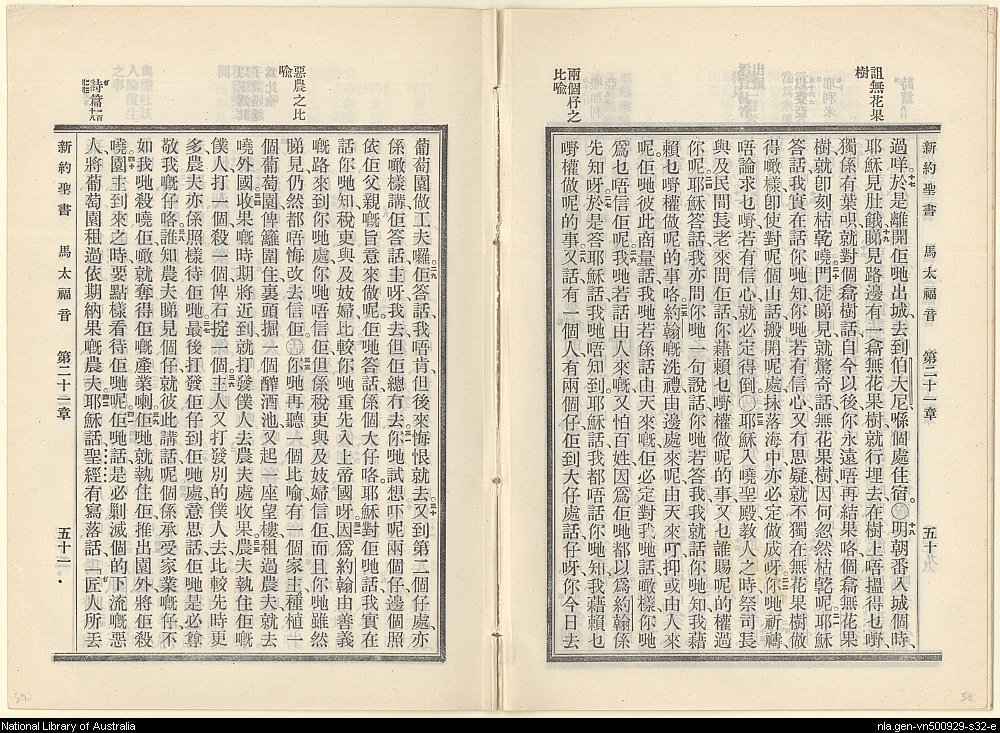 詛無花果樹
兩個仔之比喩
新約聖書 馬太福音 第二十一章
過咩於是離開佢哋出城去到伯大尼喺個處住宿明朝番入城個時
耶穌見肚餓睇見路邊有一樖無花果樹就行埋去在樹上唔搵得乜嘢
獨係有葉呮就對個樖樹話自今以後你永遠唔再結果咯個樖無花果
樹就卽刻枯乾嘵門徒睇見就驚奇話無花果樹因何忽然枯乾呢耶穌
答話我實在話你哋知你哋若有信心又有思疑就不獨在無花果樹做
得噉樣卽使對呢個山話搬開呢處抹落海中亦必定做成呀你哋祈禱
唔論求乜嘢若有信心就必定得倒耶穌入嘵聖殿教人之時祭司長
與及民間長老來問佢話你藉賴乜嘢權做呢的事又乜誰賜呢的權過
你呢耶穌答話我亦問你哋一句說話你哋若答我我就話你哋知我藉
賴乜嘢權做呢的事咯約翰嘅洗禮由邊處來呢由天來吖抑或由人來
呢佢哋彼此商量話我哋若係話由天來嘅佢必定對我哋話噉樣你哋
爲乜唔信佢呢我哋若話由人來嘅又怕百姓因爲佢哋都以爲約翰係
先知呀於是答耶穌話我哋唔知到耶穌話我都唔話你哋知我藉賴乜
嘢權做呢的事又話有一個人有兩個仔佢到大仔處話仔呀你今日去
惡農之比喩
詩篇一百十八
新約聖書 馬太福音 第二十一章 五十二
葡萄園做工夫囉佢答話我唔肯但後來悔恨就去又到第二個仔處亦
係噉樣講佢答話主呀我去但佢總冇去你哋試想吓呢兩個仔邊個照
依佢父親嘅旨意來做呢佢哋答話係個大仔咯耶穌對佢哋話我實在
話你哋知稅吏與及妓婦比較你哋重先入上帝國呀因爲約翰由善義
嘅路來到你哋處你哋唔信佢但係稅吏與及妓婦信佢而且你哋雖然
睇見仍然都唔悔改去信佢你哋再聽一個比喻有一個家主種植一
個葡萄園俾籬圍住裏頭掘一個醡酒池又起一座望樓租過農夫就去
嘵外國收果嘅時期將近到就打發僕人去農夫處收果農夫執住佢嘅
僕人打一個殺一個俾石掟一個主人又打發別的僕人去比較先時更
多農夫亦係照樣待佢哋最後打發佢仔到佢哋處意思話佢哋是必尊
敬我嘅仔咯誰知農夫睇見個仔就彼此講話呢個係承受家業嘅仔不
如我哋殺嘵佢噉就奪得佢嘅產業喇佢哋就執住佢推出園外將佢殺
嘵園主到來之時要點樣看待佢哋呢佢哋話是必剿滅個的下流嘅惡
人將葡萄園租過依期納果嘅農夫耶穌話聖經有寫落話匠人所丟
National Library of Australia
nla.gen-vn500929-s32-e